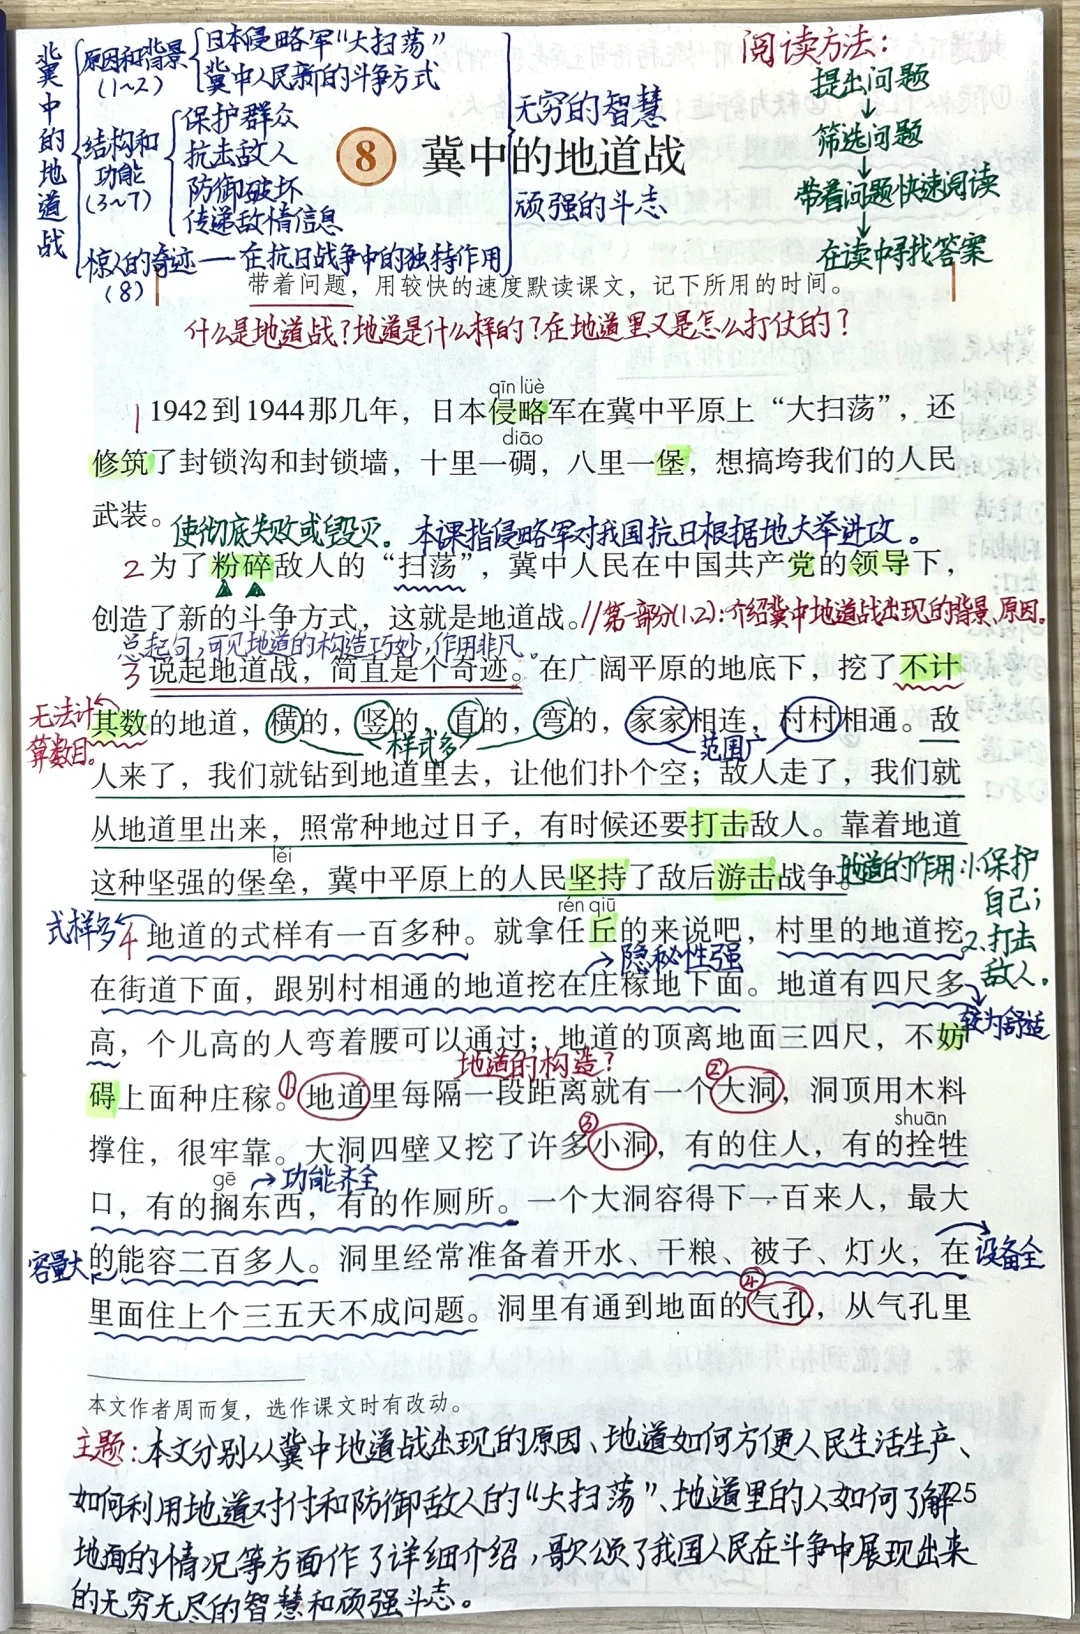 冀中的地道战
原因和背景
(1~2)
日本侵略军“大扫荡”
冀中人民新的斗争方式
结构和
功能
(3~7)
保护群众
抗击敌人
防御破坏
传递敌情信息
惊人的奇迹——在抗日战争中的独特作用
(8)
无穷的智慧
顽强的斗志
阅读方法:
提出问题
筛选问题
带着问题快速阅读
在读中寻找答案
8 冀中的地道战
带着问题，用较快的速度默读课文，记下所用的时间。
什么是地道战?地道是什么样的?在地道里又是怎么打仗的?
qīn lüè
1 1942到1944那几年，日本侵略军在冀中平原上“大扫荡”，还
diāo
修筑了封锁沟和封锁墙，十里一碉，八里一堡，想搞垮我们的人民
武装。
使彻底失败或毁灭。 本课指侵略军对我国抗日根据地大举进攻。
2 为了粉碎敌人的“扫荡”，冀中人民在中国共产党的领导下，
创造了新的斗争方式，这就是地道战。
//第一部分(1,2):介绍冀中地道战出现的背景、原因。
总起句,可见地道的构造巧妙,作用非凡。
3 说起地道战，简直是个奇迹。在广阔平原的地底下，挖了不计
无法计
算数目。
其数的地道，横的，竖的，直的，弯的，家家相连，村村相通。敌
样式多
范围广
人来了，我们就钻到地道里去，让他们扑个空；敌人走了，我们就
从地道里出来，照常种地过日子，有时候还要打击敌人。靠着地道
lěi
这种坚强的堡垒，冀中平原上的人民坚持了敌后游击战争。
地道的作用:1.保护
自己;
2.打击
敌人。
rén qiū
式样多
4 地道的式样有一百多种。就拿任丘的来说吧，村里的地道挖
隐秘性强
在街道下面，跟别村相通的地道挖在庄稼地下面。地道有四尺多
较为舒适
高，个儿高的人弯着腰可以通过；地道的顶离地面三四尺，不妨
地道的构造?
碍上面种庄稼。①地道里每隔一段距离就有一个②大洞，洞顶用木料
shuān
撑住，很牢靠。大洞四壁又挖了许多③小洞，有的住人，有的拴牲
gē
功能齐全
口，有的搁东西，有的作厕所。一个大洞容得下一百来人，最大
容量大
的能容二百多人。洞里经常准备着开水、干粮、被子、灯火，在
设备全
里面住上个三五天不成问题。洞里有通到地面的④气孔，从气孔里
本文作者周而复，选作课文时有改动。
主题:本文分别从冀中地道战出现的原因、地道如何方便人民生活生产、
如何利用地道对付和防御敌人的“大扫荡”、地道里的人如何了解
25
地面的情况等方面作了详细介绍,歌颂了我国人民在斗争中展现出来
的无穷无尽的智慧和顽强斗志。